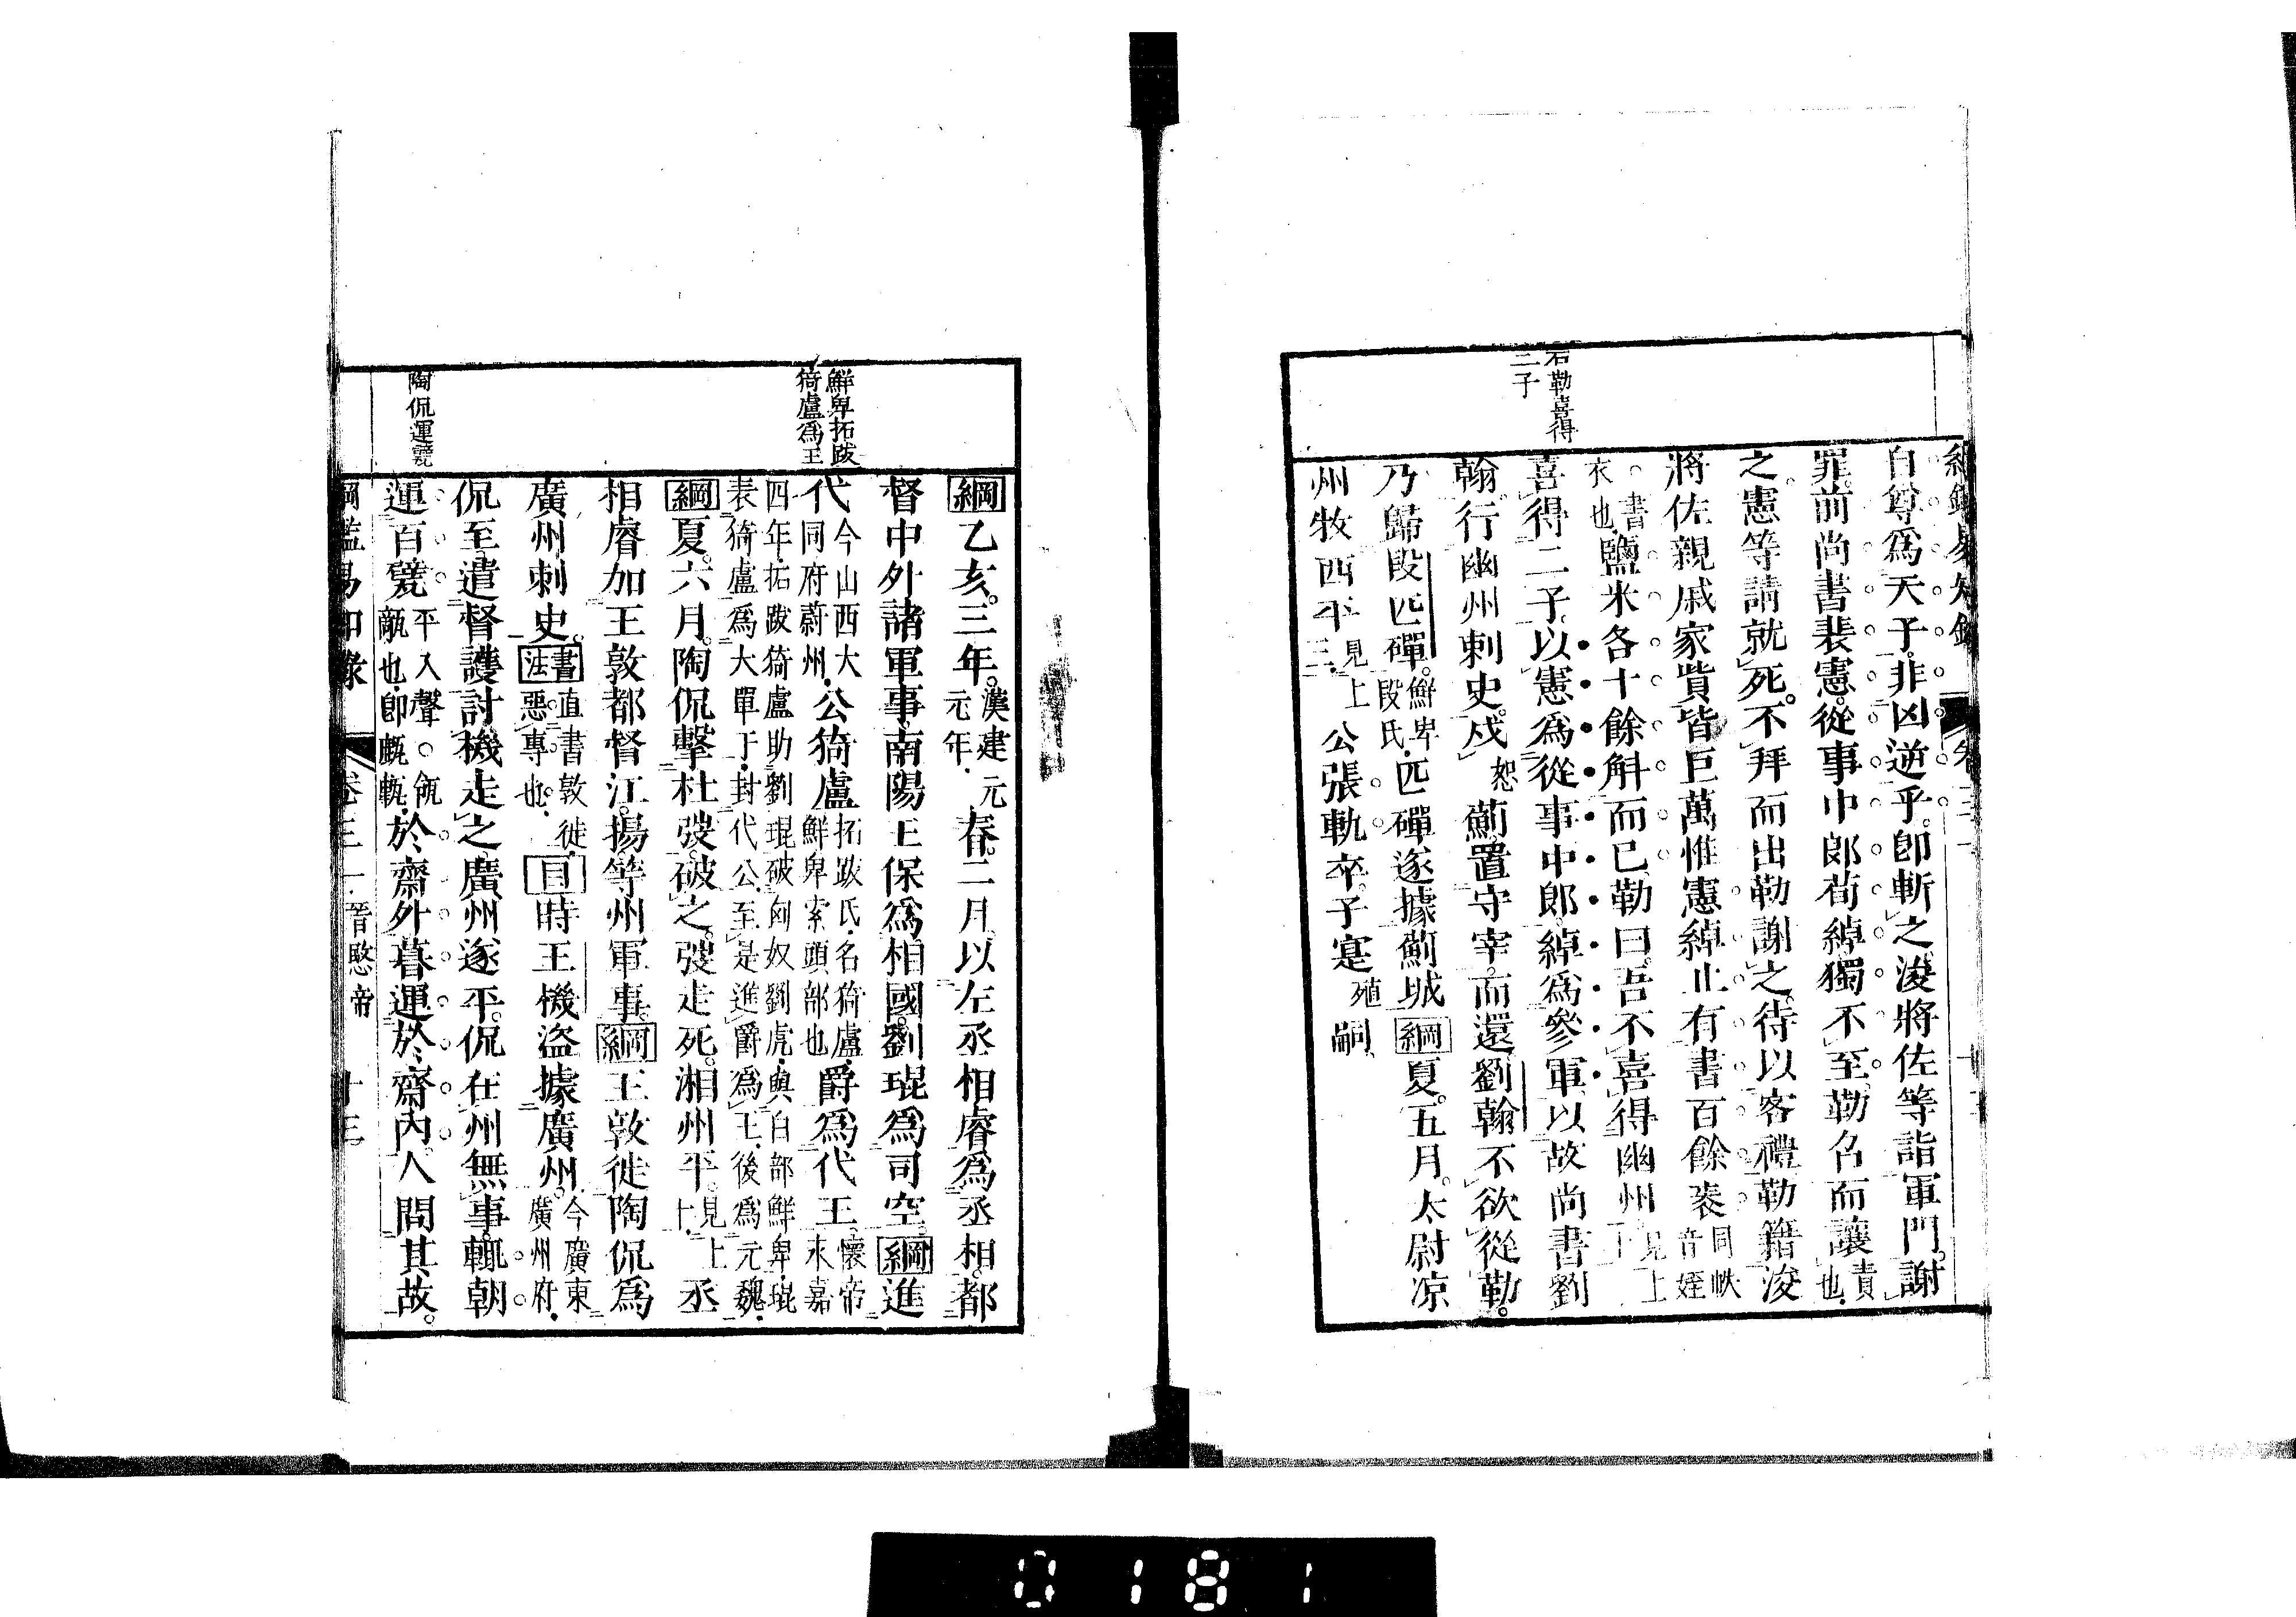 石勒喜得
二子
自尊爲天子。非凶逆乎。卽斬之。浚將佐等詣軍門。謝
罪。前尚書裴憲。從事中郎荀綽獨不至。勒名而讓責也。
之。憲等請就死。不拜而出勒謝之。待以客禮。勒籍浚
將佐親戚家貲。皆巨萬。惟憲綽止有書百餘袠同帙音姪
。書衣也。鹽米各十餘斛而已。勒曰。吾不喜得幽州見上
喜得二子。以憲爲從事中郎。綽爲參軍。以故尚書劉
翰行幽州刺史。戍恕薊。置守宰。而還。劉翰不欲從勒。
乃歸段匹磾。鮮卑段氏。匹磾遂據薊城綱夏。五月。太尉凉
州牧西平見上三。公張軌卒。子寔殖嗣。
鮮卑拓跋
猗盧爲王
陶侃運甓
綱乙亥。三年。漢建元元年。春。二月。以左丞相睿爲丞相。都
督中外諸軍事。南陽王保爲相國。劉琨爲司空。綱進
代今山西大同府蔚州。公猗盧拓跋氏。名猗盧。鮮卑索頭部也爵爲代王。懷帝永嘉
四年。拓跋猗盧助劉琨破匈奴劉虎。與白部鮮卑。琨
表猗盧爲大單于。封代公。至是進爵爲王。後爲元魏。
綱夏。六月。陶侃擊杜弢。破之。弢走死。湘州平。見上十。丞
相睿加王敦都督江。揚等州軍事。綱王敦徙陶侃爲
廣州刺史。書法直書敦徙。惡專也。目時王機盜據廣州。今廣東廣州府。
侃至。遣督護討機走之。廣州遂平。侃在州無事。輒朝
運百甓平入聲。○瓴甋也。卽甎甎。於齋外。暮運於齋內。人問其故。
綱鑑易知錄 卷三一 晉愍帝 十三
0181